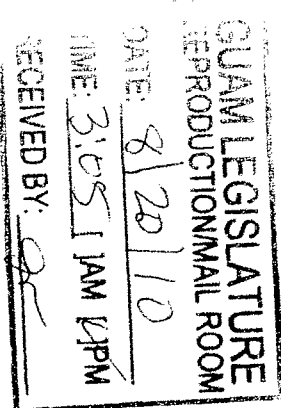 GUAM LEGISLATURE
REPRODUCTION/MAIL ROOM
DATE: 8/20/10
TIME: 3:05 [ ]AM [✓]PM
RECEIVED BY: